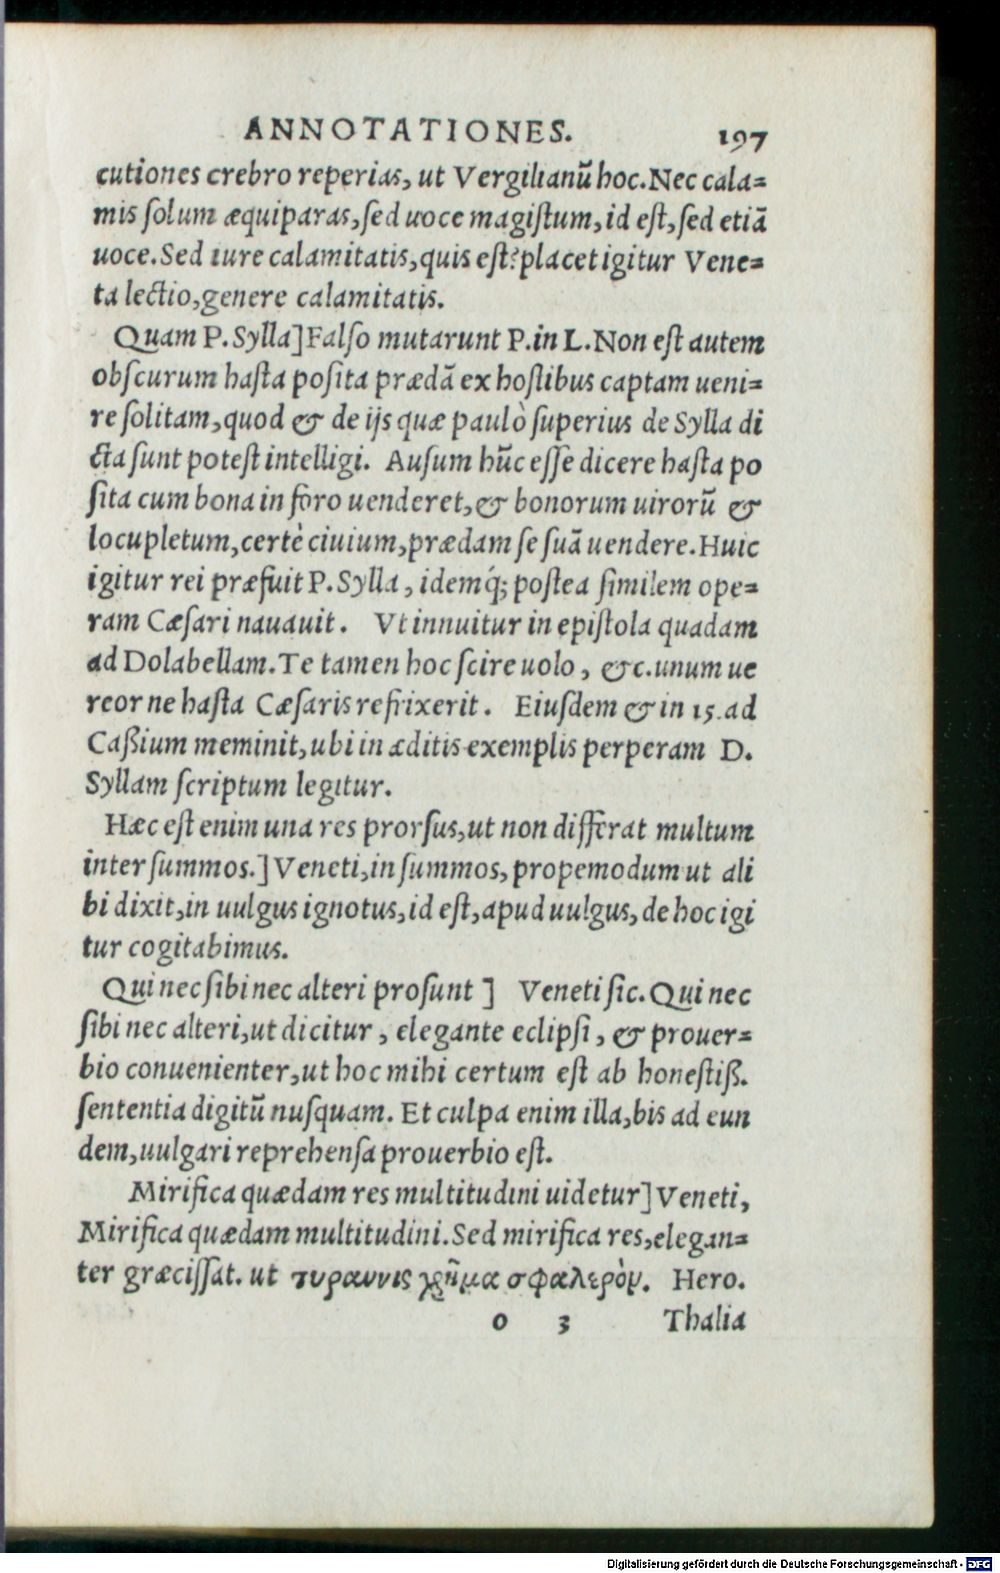 ANNOTATIONES. 197
cutiones crebro reperias, ut Vergilianũ hoc. Nec cala=
mis solum æquiparas, sed uoce magistum, id est, sed etiã
uoce. Sed iure calamitatis, quis est? placet igitur Vene=
ta lectio, genere calamitatis.
Quam P. Sylla] Falso mutarunt P. in L. Non est autem
obscurum hasta posita prædã ex hostibus captam ueni=
re solitam, quod & de ijs quæ paulò superius de Sylla di
cta sunt potest intelligi. Ausum hũc esse dicere hasta po
sita cum bona in foro uenderet, & bonorum uirorũ &
locupletum, certè ciuium, prædam se suã uendere. Huic
igitur rei præfuit P. Sylla, idemq́; postea similem ope=
ram Cæsari nauauit. Vt innuitur in epistola quadam
ad Dolabellam. Te tamen hoc scire uolo, &c. unum ue
reor ne hasta Cæsaris refrixerit. Eiusdem & in 15. ad
Caßium meminit, ubi in æditis exemplis perperam D.
Syllam scriptum legitur.
Hæc est enim una res prorsus, ut non differat multum
inter summos.] Veneti, in summos, propemodum ut ali
bi dixit, in uulgus ignotus, id est, apud uulgus, de hoc igi
tur cogitabimus.
Qui nec sibi nec alteri prosunt] Veneti sic. Qui nec
sibi nec alteri, ut dicitur, elegante eclipsi, & prouer=
bio conuenienter, ut hoc mihi certum est ab honestiß.
sententia digitũ nusquam. Et culpa enim illa, bis ad eun
dem, uulgari reprehensa prouerbio est.
Mirifica quædam res multitudini uidetur] Veneti,
Mirifica quædam multitudini. Sed mirifica res, elegan=
ter græcissat. ut τυραννις χρῆμα σφαλερὸν. Hero.
o 3 Thalia
Digitalisierung gefördert durch die Deutsche Forschungsgemeinschaft - DFG